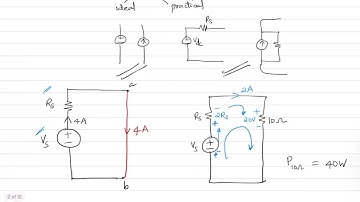 ideal practical
Rs
Vs
a
2A
Rs
4A
4A
Rs
2Rs
20V
10Ω
Vs
Vs
P10Ω = 40W
b
2 of 12